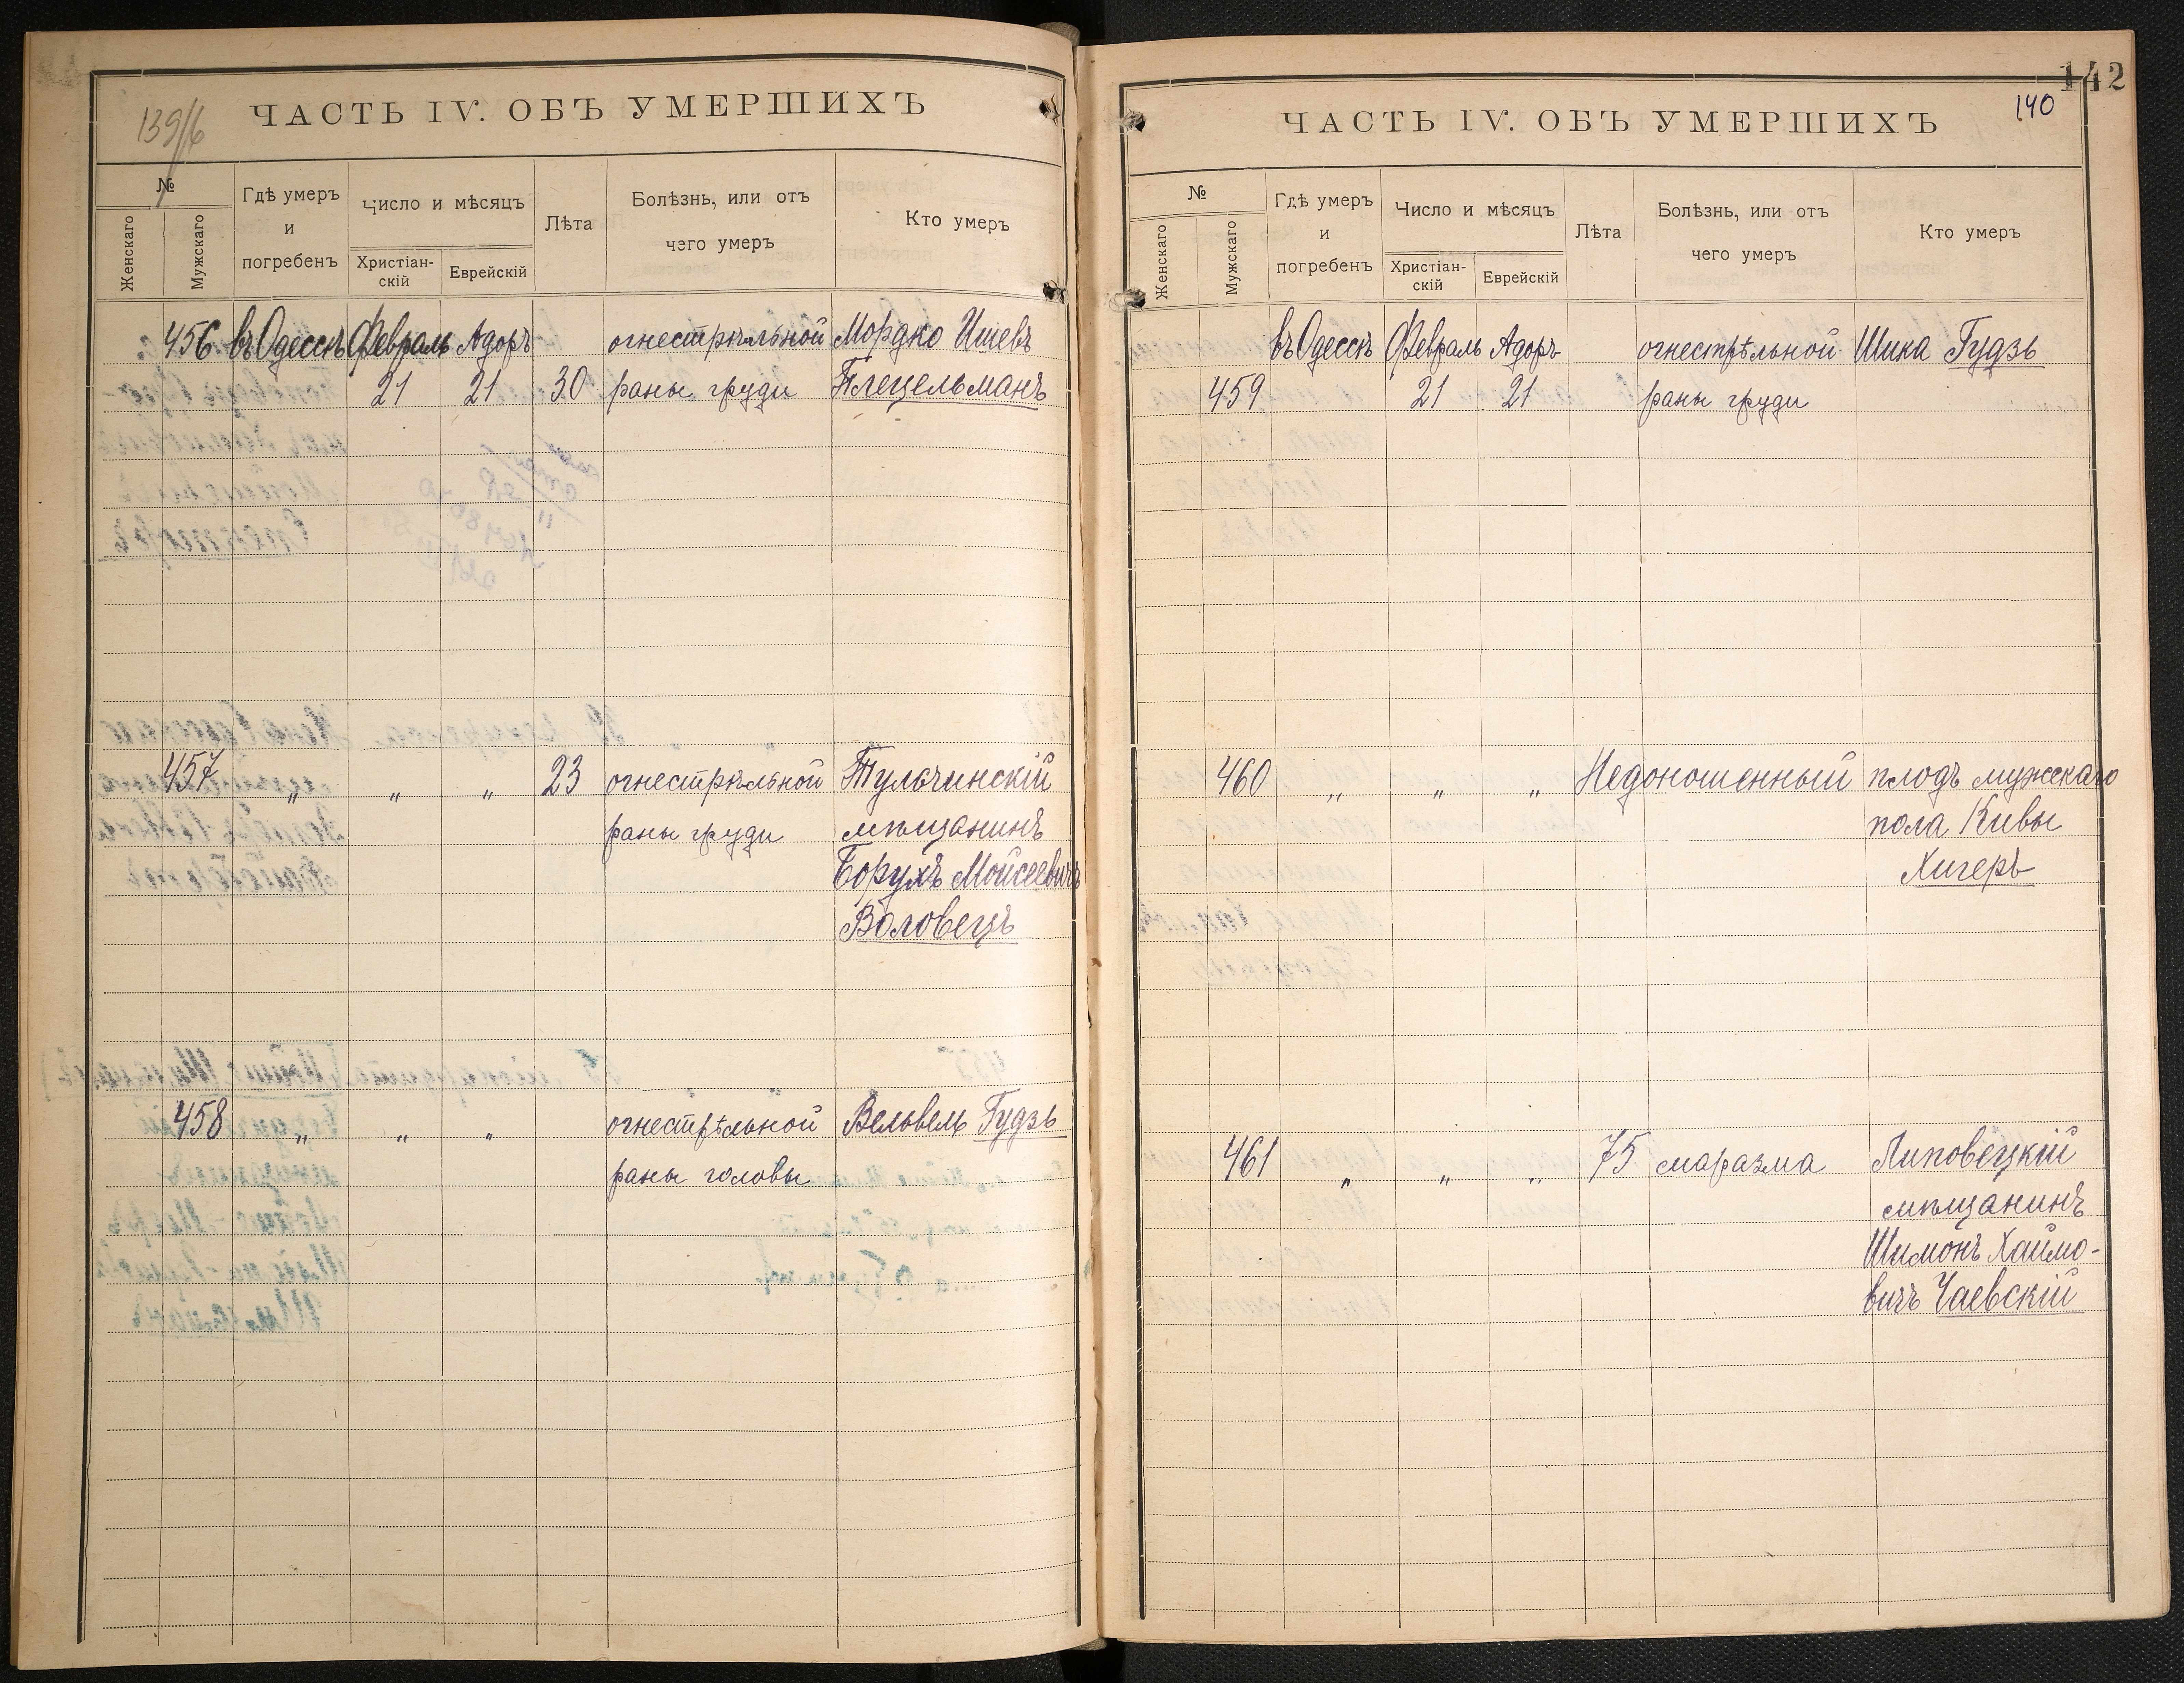 139/б
ЧАСТЬ IV. ОБЪ УМЕРШИХЪ
№
Женскаго
Мужскаго
Гдѣ умеръ
и
погребенъ
Число и мѣсяцъ
Христіан-
скій
Еврейскій
Лѣта
Болѣзнь, или отъ
чего умеръ
Кто умеръ
456 въ Одессѣ Февраль Адоръ огнестрѣльной Мордко Ишевъ
21 21 30 раны груди Плецельманъ
457 „ „ „ 23 огнестрѣльной Тульчинскій
раны груди мѣщанинъ
Борухъ Мойсеевичъ
Воловецъ
458 „ „ „ огнестрѣльной Вельвель Гудзь
раны головы
142
140
ЧАСТЬ IV. ОБЪ УМЕРШИХЪ
№
Женскаго
Мужскаго
Гдѣ умеръ
и
погребенъ
Число и мѣсяцъ
Христіан-
скій
Еврейскій
Лѣта
Болѣзнь, или отъ
чего умеръ
Кто умеръ
въ Одессѣ Февраль Адоръ огнестрѣльной Шика Гудзь
459 21 21 раны груди
460 „ „ „ Недоношенный плодъ мужскаго
пола Кивы
Хигеръ
461 „ „ „ 75 маразма Липовецкій
мѣщанинъ
Шимонъ Хаимо-
вичъ Чаевскій